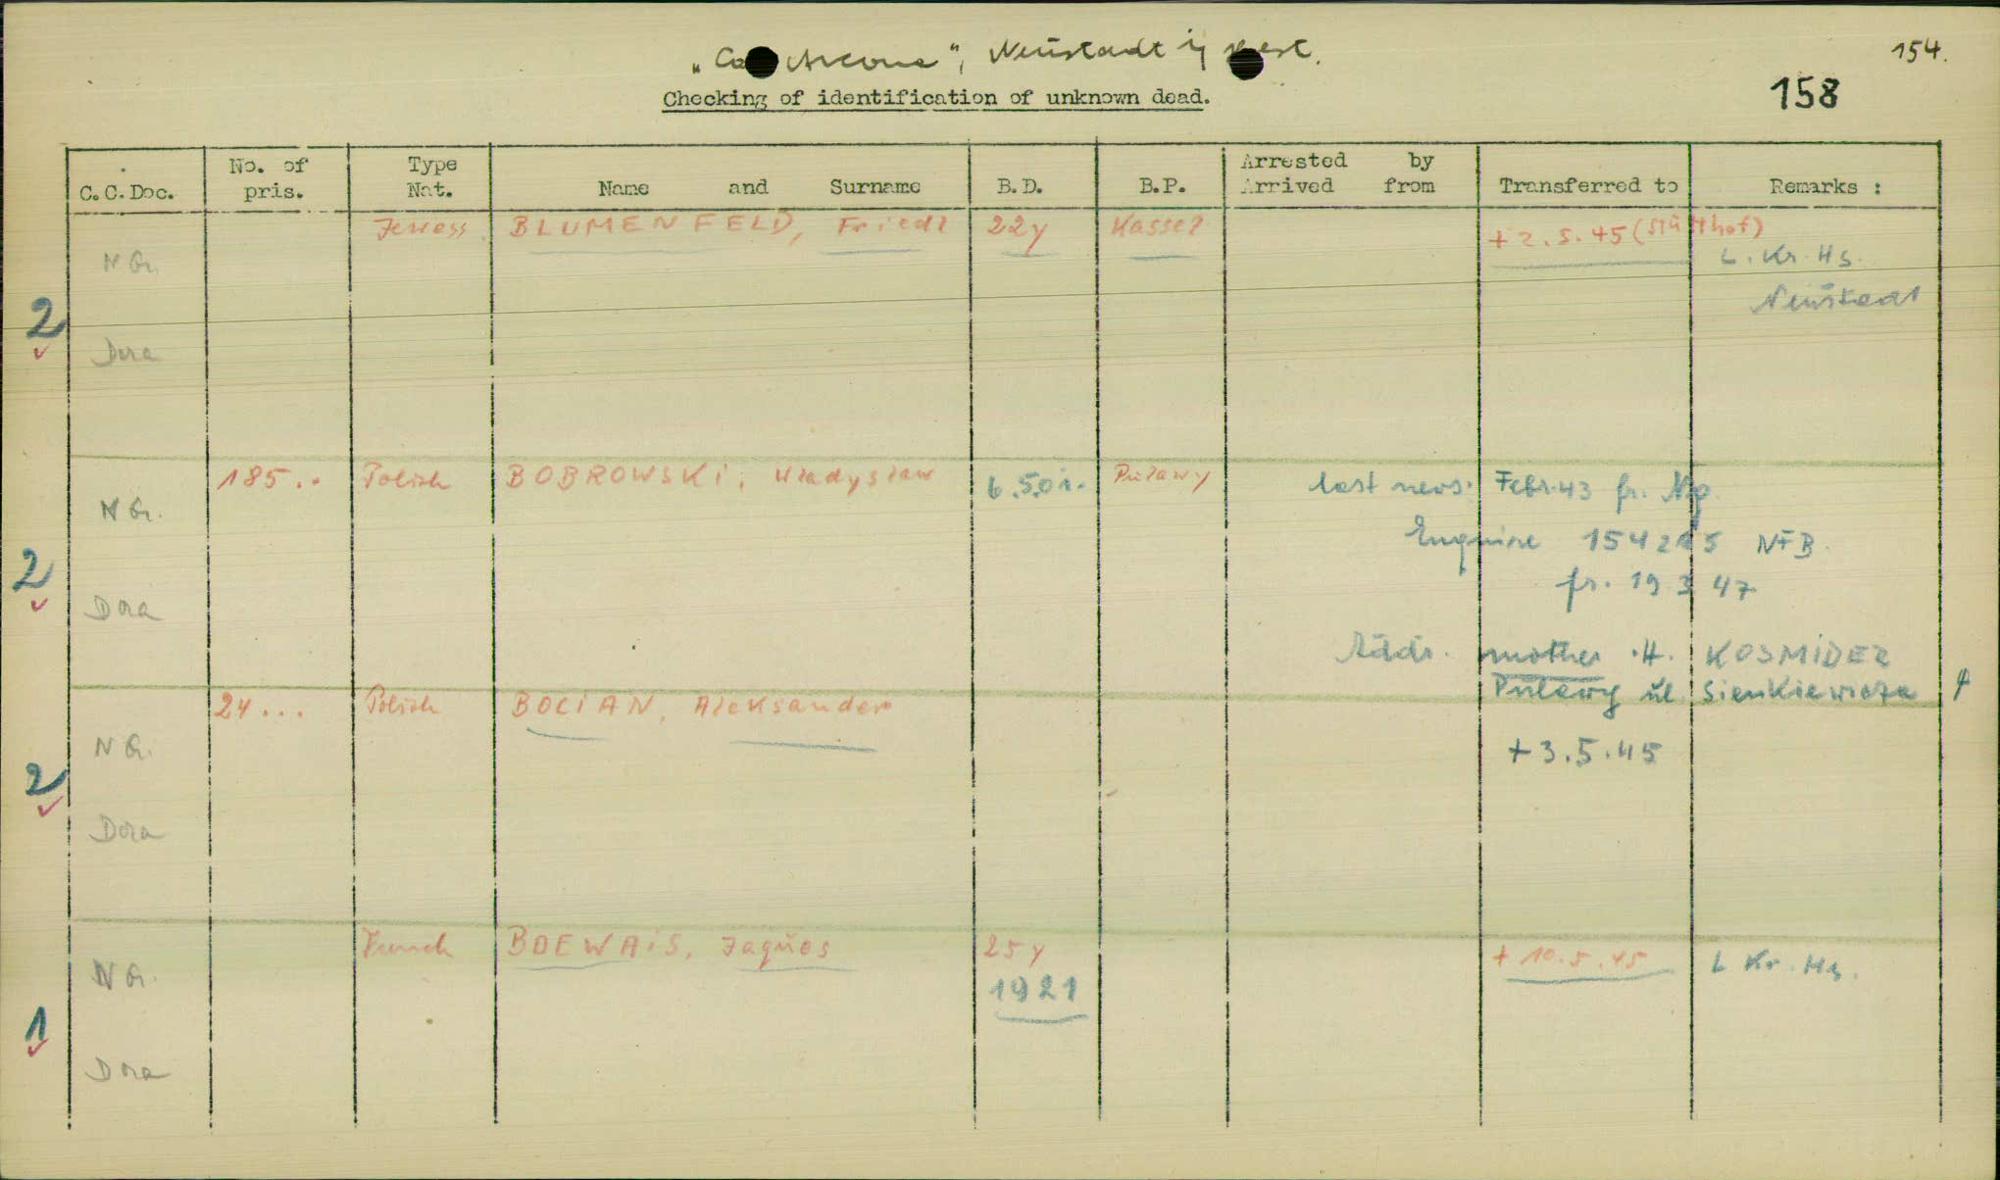 „Ca Arcona", Neustadt i/ st.
154.
Checking of identification of unknown dead.
158
C.C.Doc. No. of pris. Type Nat. Name and Surname B.D. B.P. Arrested by Arrived from Transferred to Remarks :
Jewess BLUMENFELD, Friedl 22y Kassel + 2.5.45 (Stutthof)
N G. L. Kr. Hs.
2 Neustadt
Dora
185.. Polish BOBROWSKI, Władysław 6.5.01. Puławy last news: Febr. 43 fr.
N G. Enquire NFB.
2 fr. 19 3 47
Dora
Addr. mother H. KOSMIDER
Puławy ul. Sienkiewicza
24... Polish BOCIAN, Aleksander
N G. + 3.5.45
2
Dora
French BOEWAIS, Jaques 25y + 10.5.45 L Kr. Hs.
N G. 1921
1
Dora